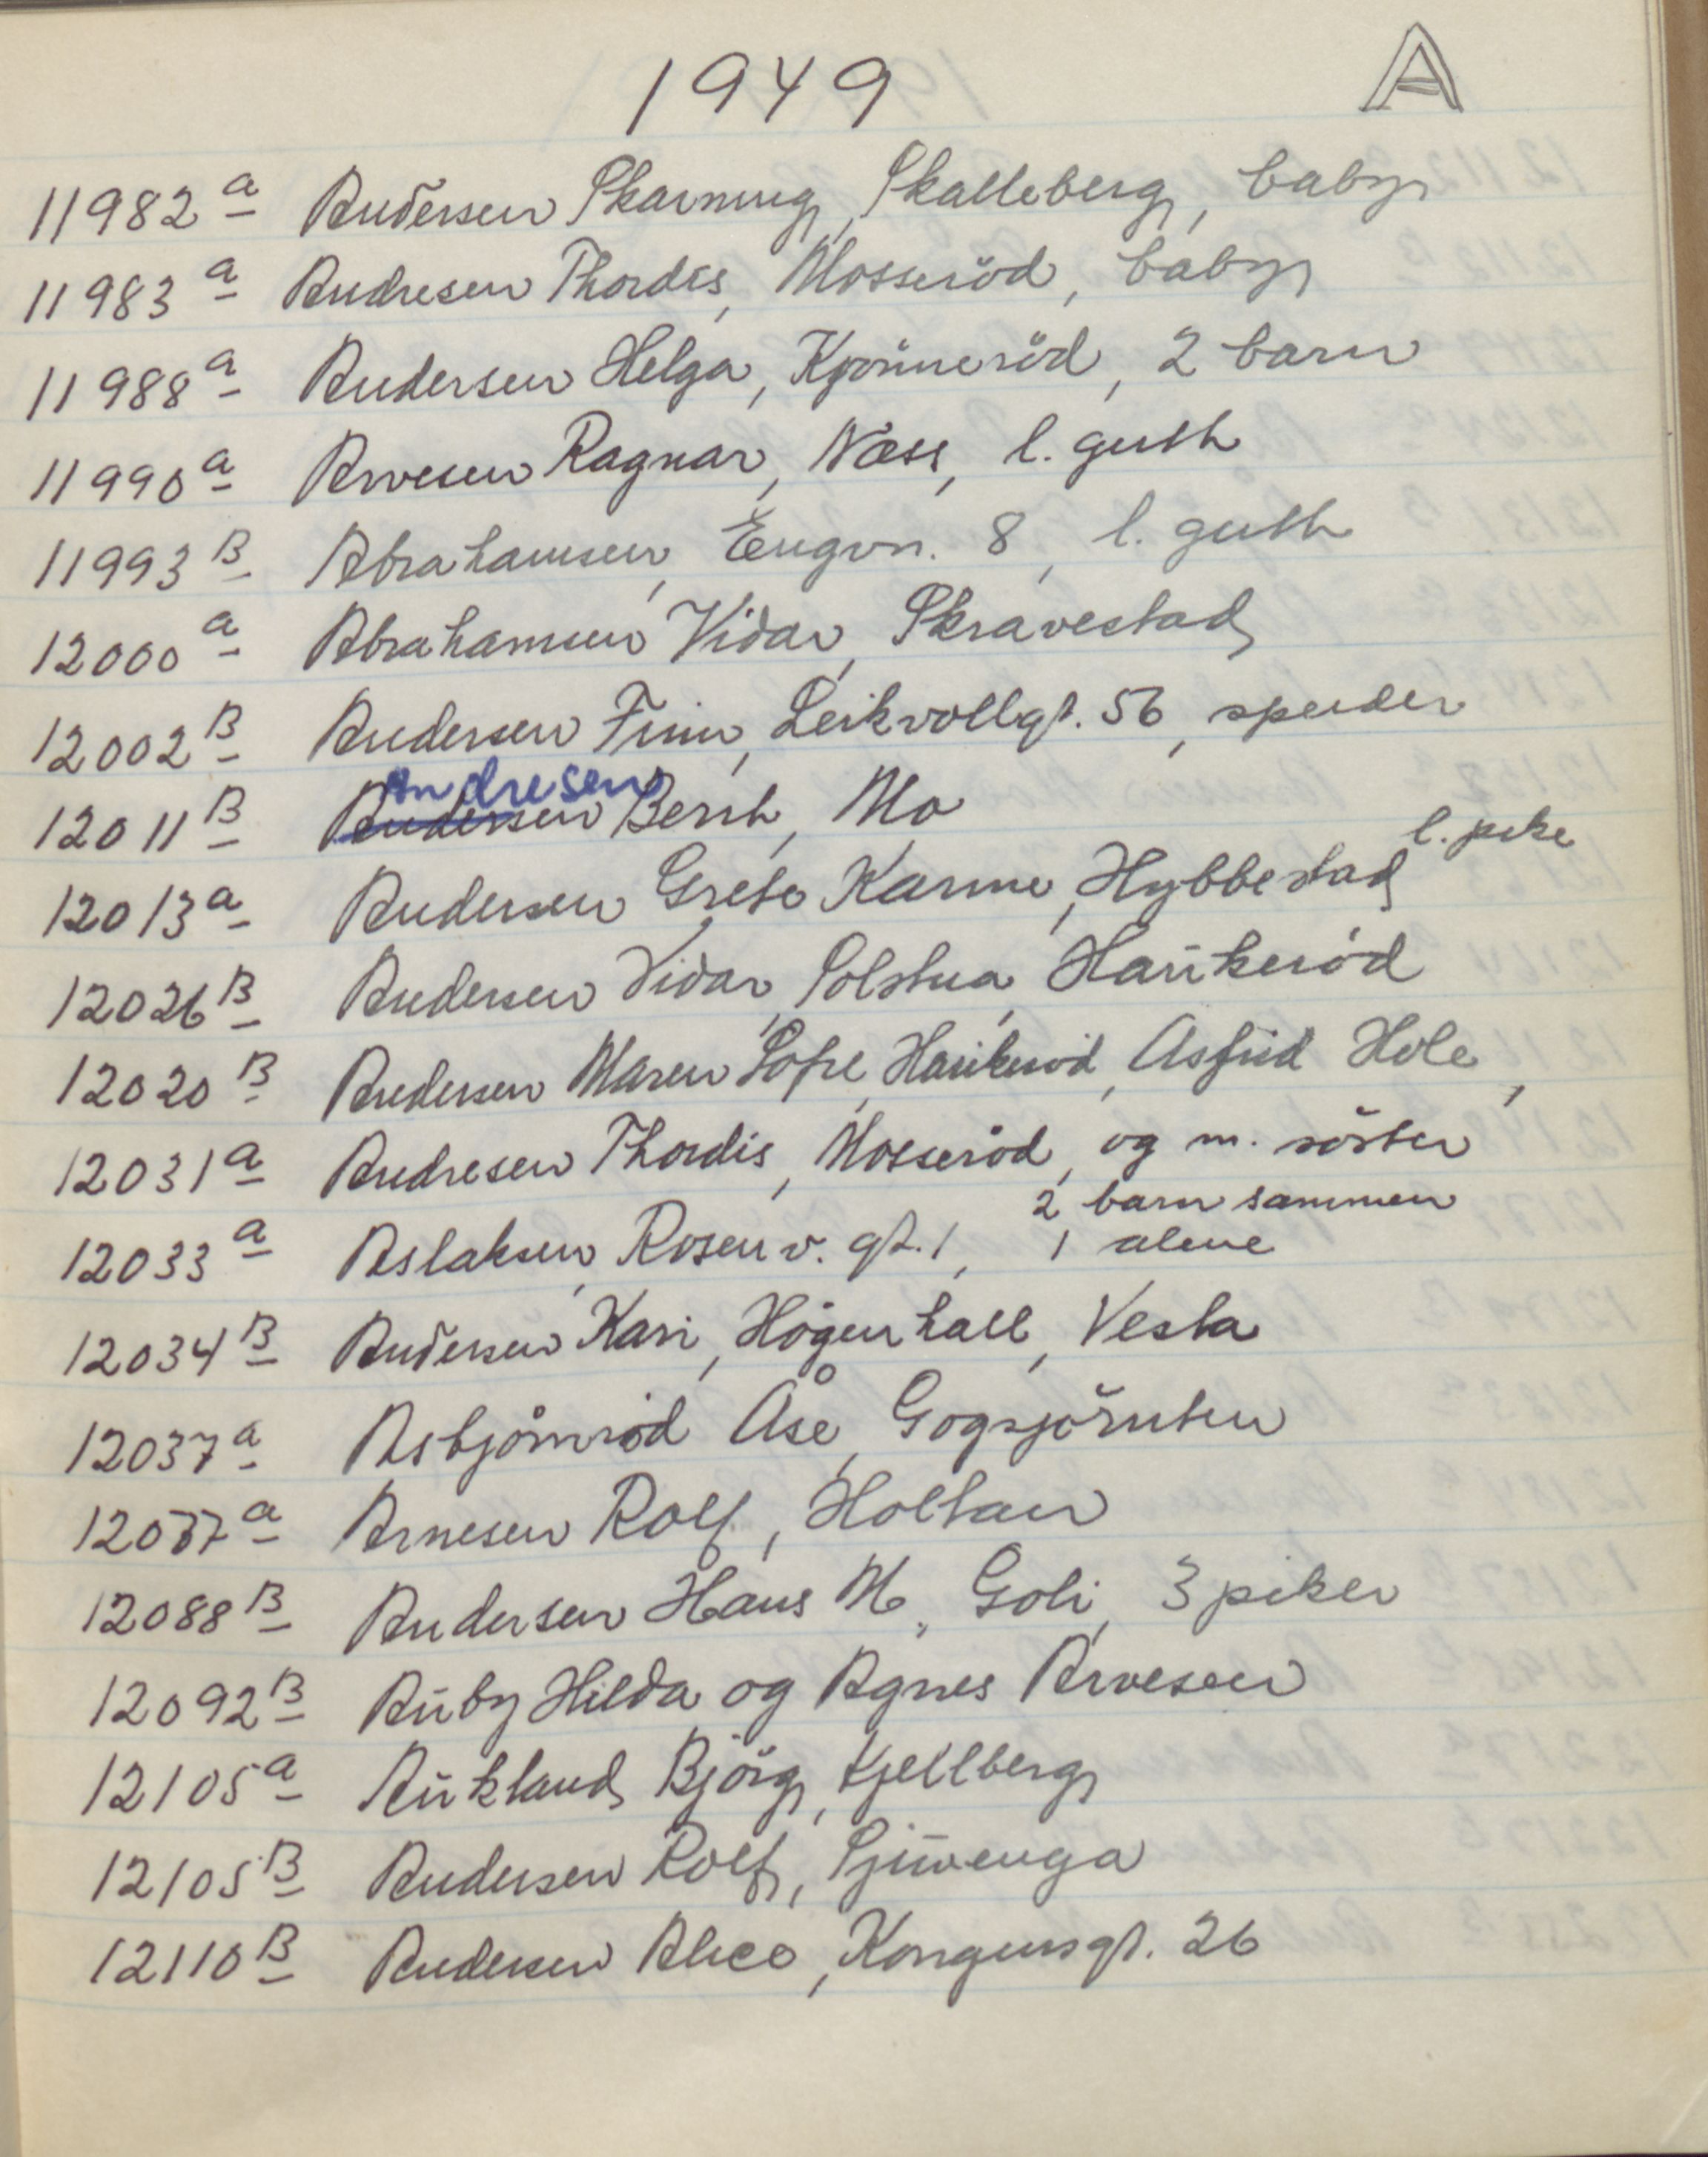 1949 A
11982 a Andersen Skarning, Skalleberg, baby
11983 a Andresen Thordis, Mosseröd, baby
11988 a Andersen Helga, Kjönneröd, 2 barn
11990 a Arvesen Ragnar, Næss, l. gutt
11993 B Abrahamsen, Engvn. 8, l. gutt
12000 a Abrahamsen Vidar, Skravestad
12002 B Andersen Finn, Leikvollgt. 56, speider
Andresen
12011 B Andersen Bernh, Mo
l. pike
12013 a Andersen Grete Karine, Hybbestad
12026 B Andersen Vidar, Solstua, Haukeröd
12020 B Andersen Maren Sofie, Haukeröd, Asfrid Hole,
12031 a Andresen Thordis, Mosseröd, og m. söster
2 barn sammen
12033 a Aslaksen, Rosenv. gt. 1, 1 alene
12034 B Andersen Kari, Högenhall, Vesta
12037 a Asbjörnröd Åse, Gogsjöruten
12037 a Arnesen Rolf, Holtan
12088 B Andersen Hans M., Goli, 3 piker
12092 B Auby Hilda og Agnes Arvesen
12105 a Aukland Björg, Kjellberg
12105 B Andersen Rolf, Sjuvenga
12110 B Andersen Alice, Kongensgt. 26